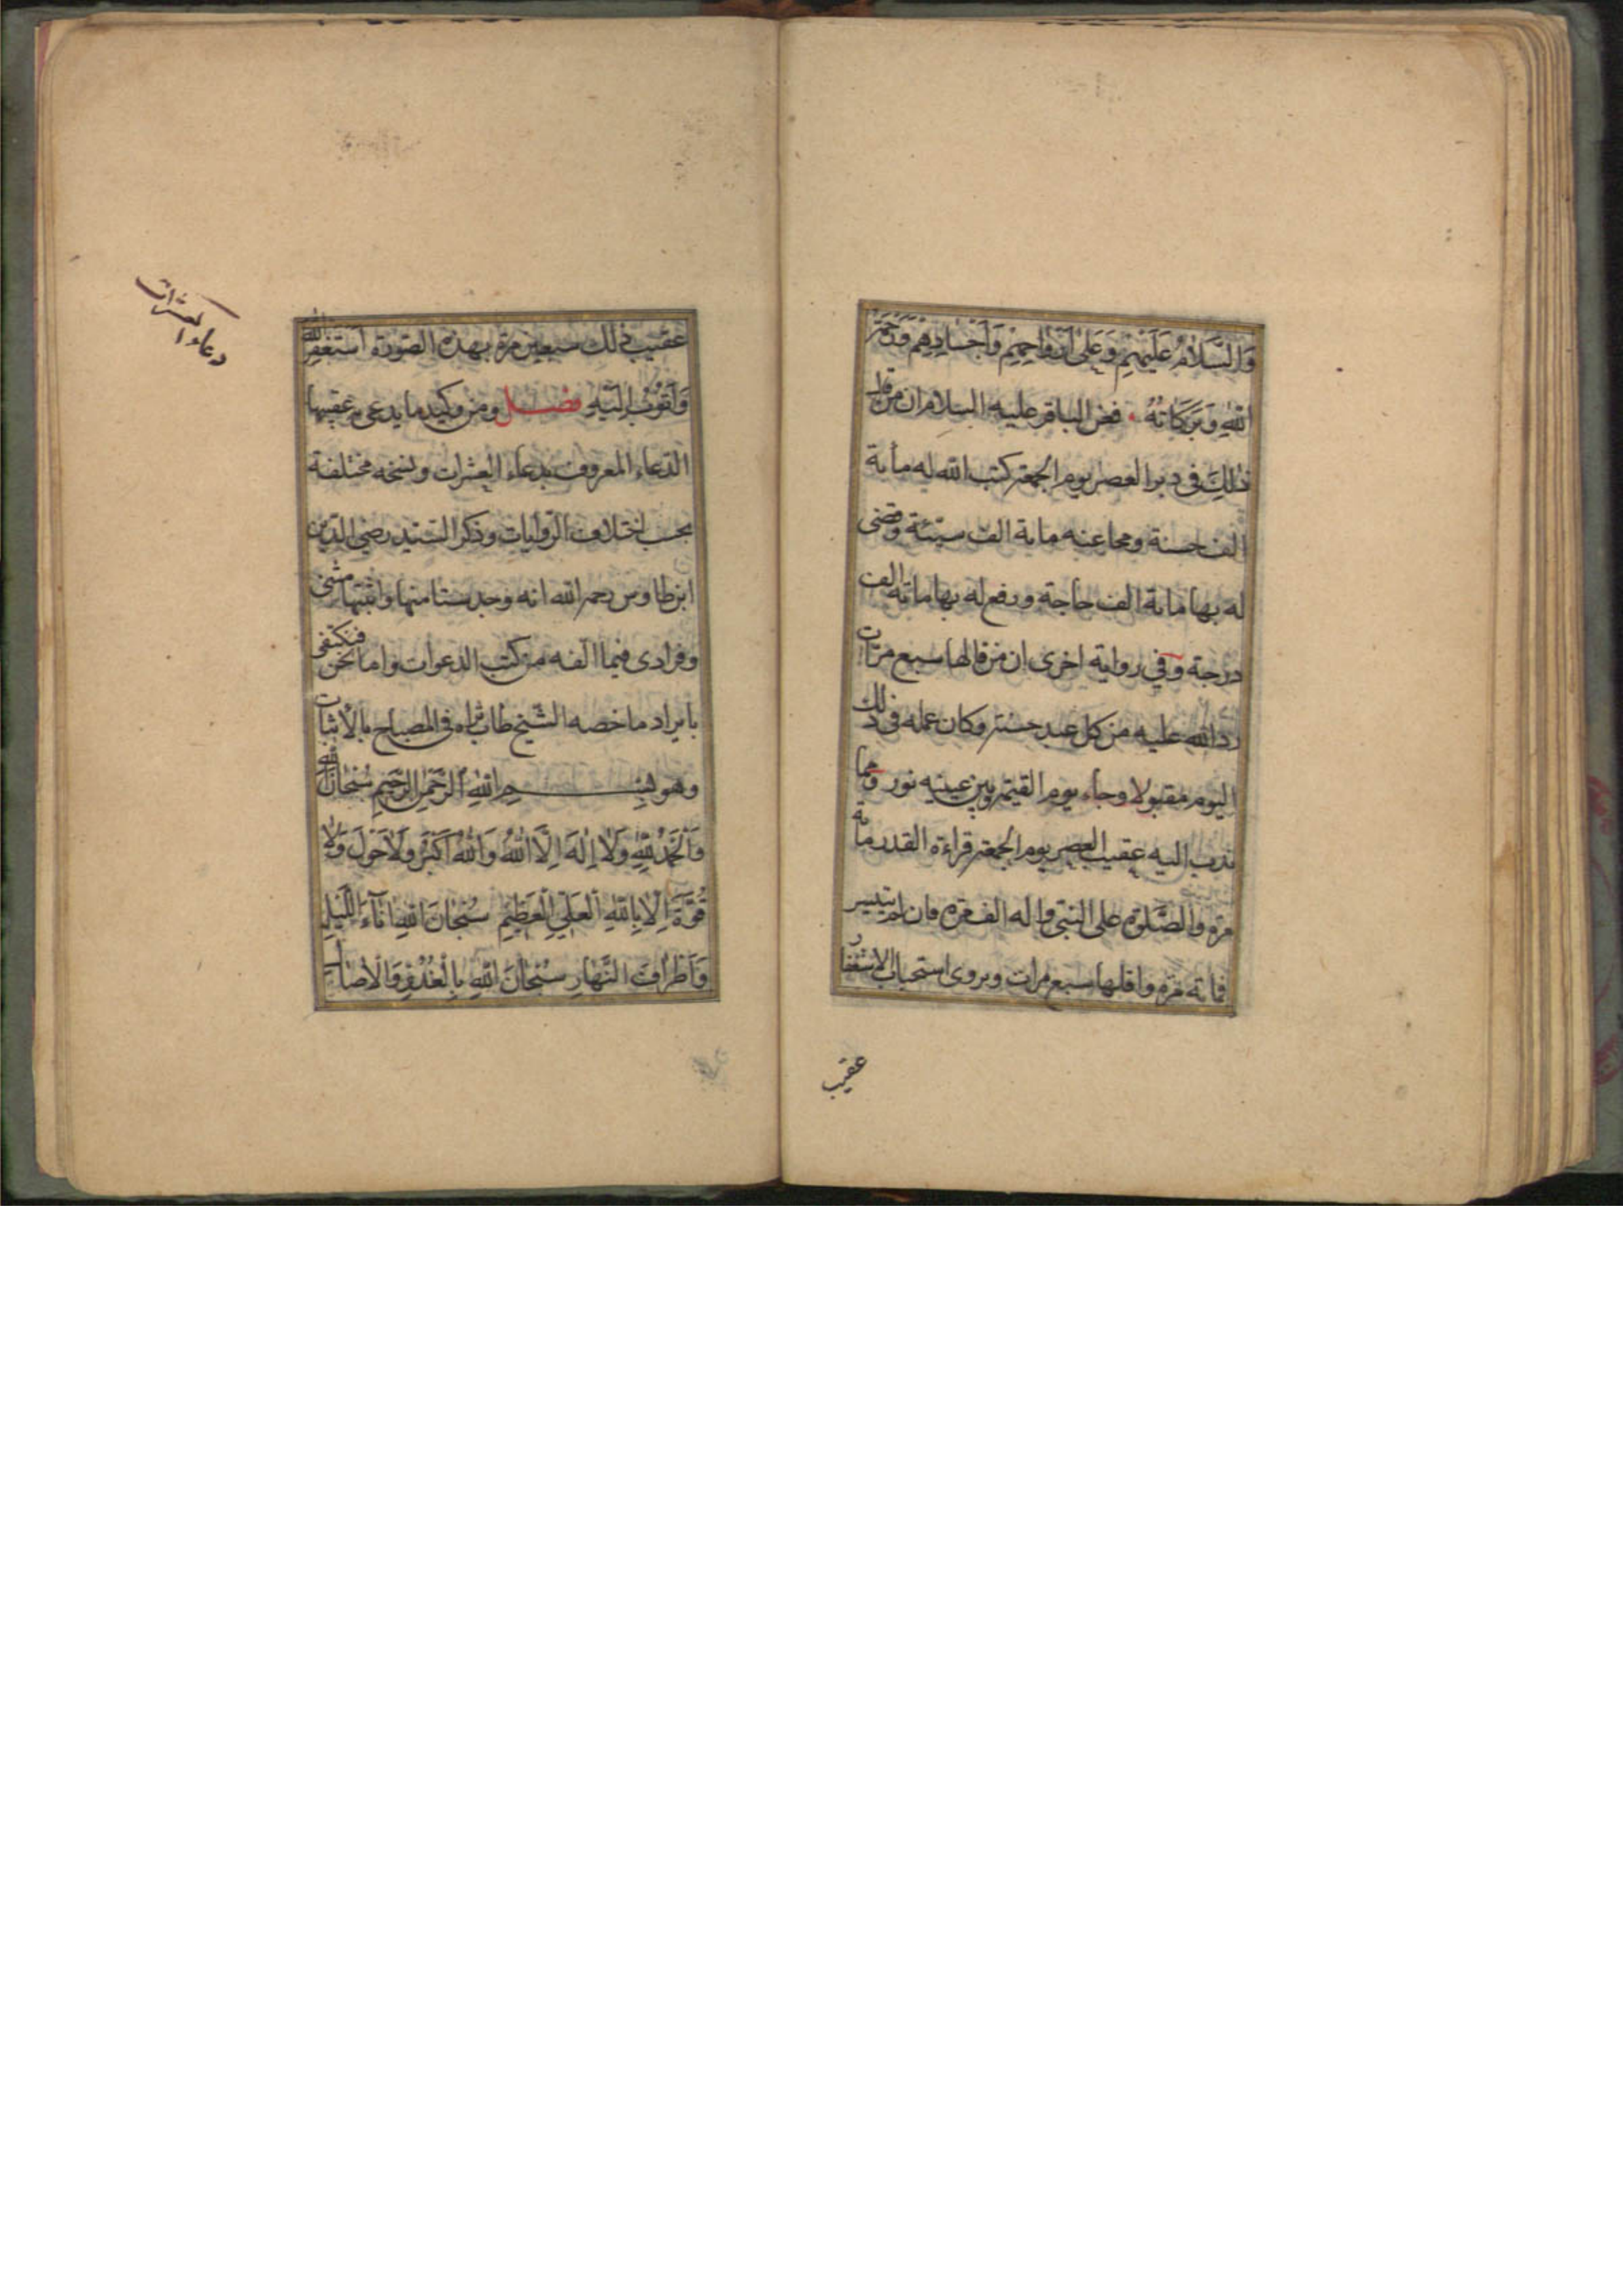 وَالسَّلامُ عَلَيْهِمْ وَعَلىٰ اَرْواحِهِمْ وَاَجْسادِهِمْ وَرَحْمَةُ
اللهِ وَبَرَكاتُهُ فعن الباقر عليه السلام ان من قال
ذلِكَ فى دبر العصر يوم الجمعة كتب الله له مأية
الف حسنة ومحا عنه ماية الف سيئة وقضى
له بها ماية الف حاجة ورفع له بها ماية الف
درجة وفي رواية اخرى ان من قالها سبع مرّات
ردّ الله عليه من كل عبد حسنة وكان عمله فى ذلك
اليوم مقبولا وجاء يوم القيمة وبين عينيه نور ومما
ندب اليه عقيب العصر يوم الجمعة قراءة القدر ماية
مرة والصَّلوة على النبي واله الف مرة فان لم يتيسر
فماية مرة واقلها سبع مرات ويروى استحباب الاستغفار
عقيب
عقيب ذلك سبعين مرة بهذه الصورة اَستَغفِرُ اللهَ
وَاَتُوبُ اِلَيْهِ فصل ومن وكيد ما يدعى به عقيبها
الدعاء المعروف بدعاء العشرات ونسخه مختلفة
بحسب اختلاف الروايات وذكر السّيد رضي الدين
ابن طاوس رحمه الله انه وجد ستا منها واثبتها مثنى
وفرادى فيما الفه من كتب الدعوات واما نحن فنكتفى
بايراد ما خصه الشّيخ طاب ثراه فى المصباح بالاثبات
وهو بِسْمِ اللهِ الرَّحْمنِ الرَّحيمِ سُبْحانَ اللهِ
وَالْحَمْدُ لِلّهِ وَلا اِلهَ اِلَّا اللهُ وَاللهُ اَكْبَرُ وَلاحَوْلَ وَلا
قُوَّةَ اِلّا بِاللهِ الْعَلِيِّ الْعَظِيمِ سُبْحانَ اللهِ اناءَ اللَّيْلِ
وَاَطْرافَ النَّهارِ سُبْحانَ اللهِ بِالْغُدُوِّ وَالْاصال
دعاء العشرات